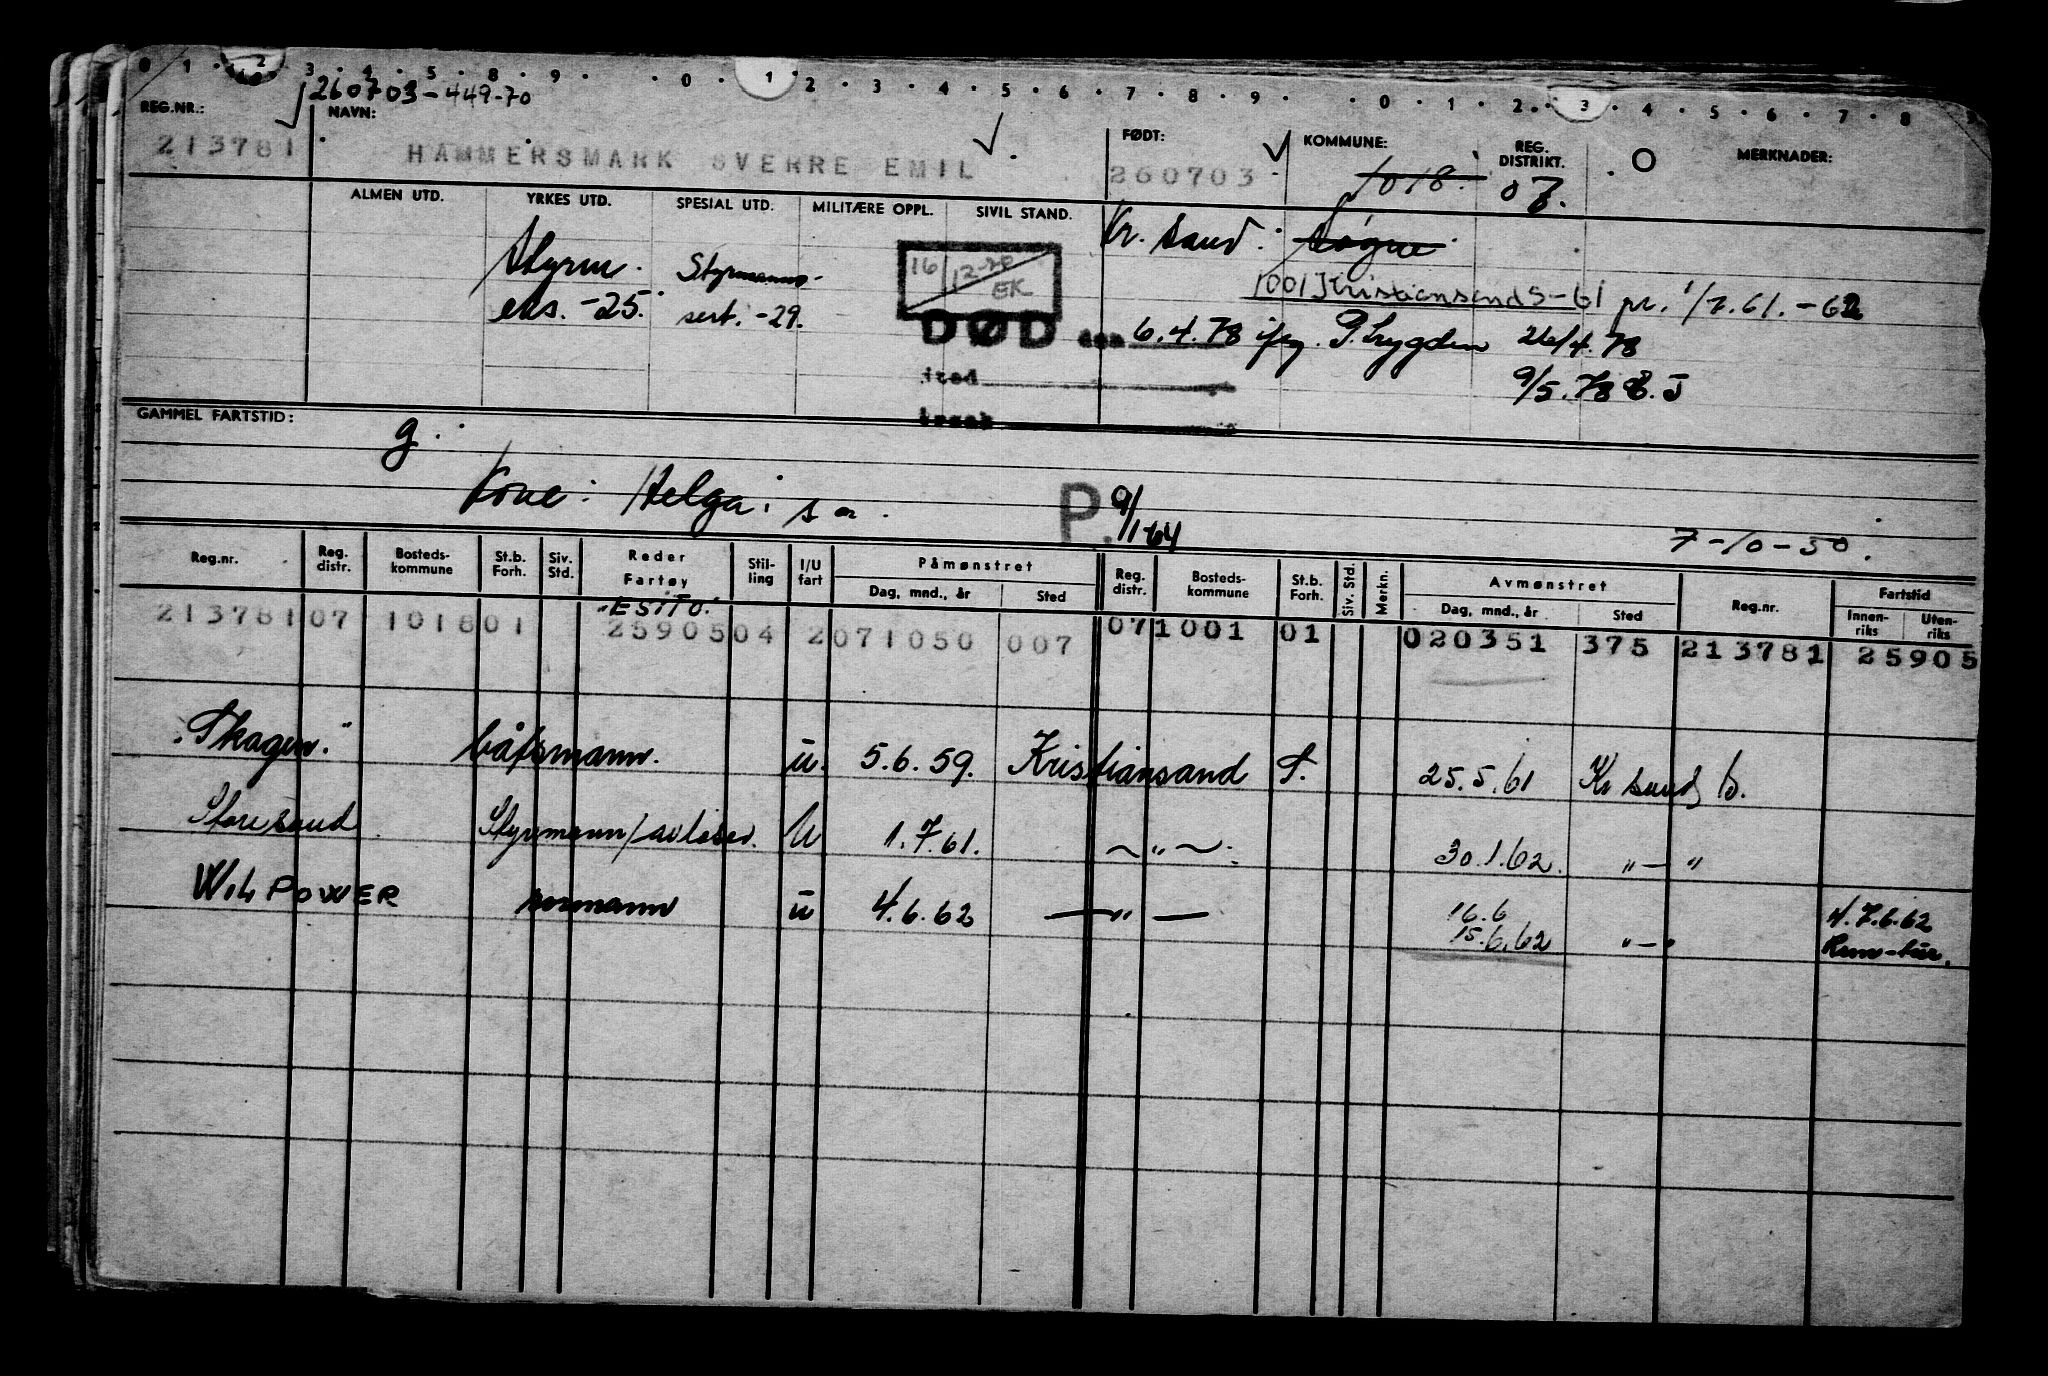 0 1 2 3 4 5 8 9 0 1 2 3 4 5 6 7 8 9 0 1 2 3 4 5 6 7 8 9
260703-449-70
REG.NR.: NAVN: FØDT: KOMMUNE: REG. DISTRIKT. MERKNADER:
213781 HAMMERSMARK SVERRE EMIL 260703 1018. 07.
ALMEN UTD. YRKES UTD. SPESIAL UTD. MILITÆRE OPPL. SIVIL STAND.
Kr. sand. Søgne
Styrm. eks. -25. Styrmanns- sert. -29.
16/12-70 EK
1001 Kristiansand S-61 pr. 1/7.61.-62
DØD den 6.4.78 ifg. 26/4.78
9/5.78
i/sted
GAMMEL FARTSTID:
g.
Kone: Helga, s a.
P. 9/1-64
7-10-50.
Reg.nr. Reg. distr. Bosteds- kommune St.b. Forh. Siv. Std. Reder Fartøy Stil- ling I/U fart Påmønstret Dag, mnd., år Sted Reg. distr. Bosteds- kommune St.b. Forh. Siv. Std. Merkn. Avmønstret Dag, mnd., år Sted Reg.nr. Fartstid Innen- riks Uten- riks
"ESITO."
213781 07 1018 01 25905 04 2 071050 007 07 1001 01 020351 375 213781 25905
"Skagen." båtsmann. u. 5.6.59. Kristiansand S. 25.5.61 Kr sand S.
Storesund Styrmann/avløser. U 1.7.61. ~ " ~ 30.1.62. "—"
WILPOWER u 4.6.62 — " — 16.6 4/7.6.62
15.6.62 "—"